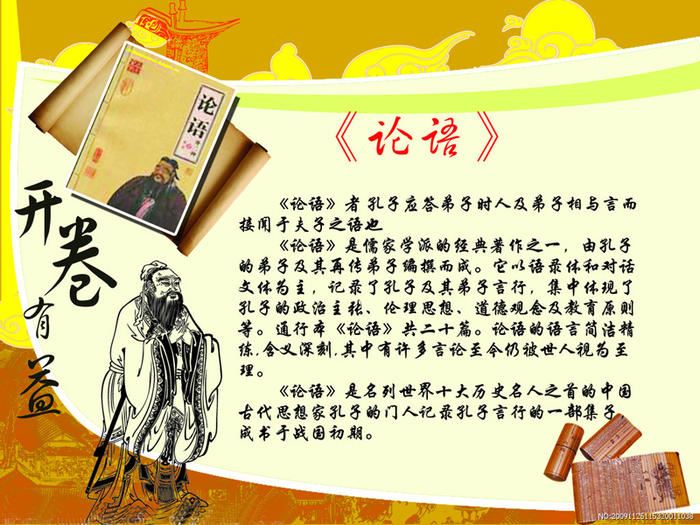 《论语》
论语
开卷有益
《论语》者孔子应答弟子时人及弟子相与言而
接闻于夫子之语也
《论语》是儒家学派的经典著作之一，由孔子
的弟子及其再传弟子编撰而成。它以语录体和对话
文体为主，记录了孔子及其弟子言行，集中体现了
孔子的政治主张、伦理思想、道德观念及教育原则
等。通行本《论语》共二十篇。论语的语言简洁精
练,含义深刻,其中有许多言论至今仍被世人视为至
理。
《论语》是名列世界十大历史名人之首的中国
古代思想家孔子的门人记录孔子言行的一部集子
成书于战国初期。